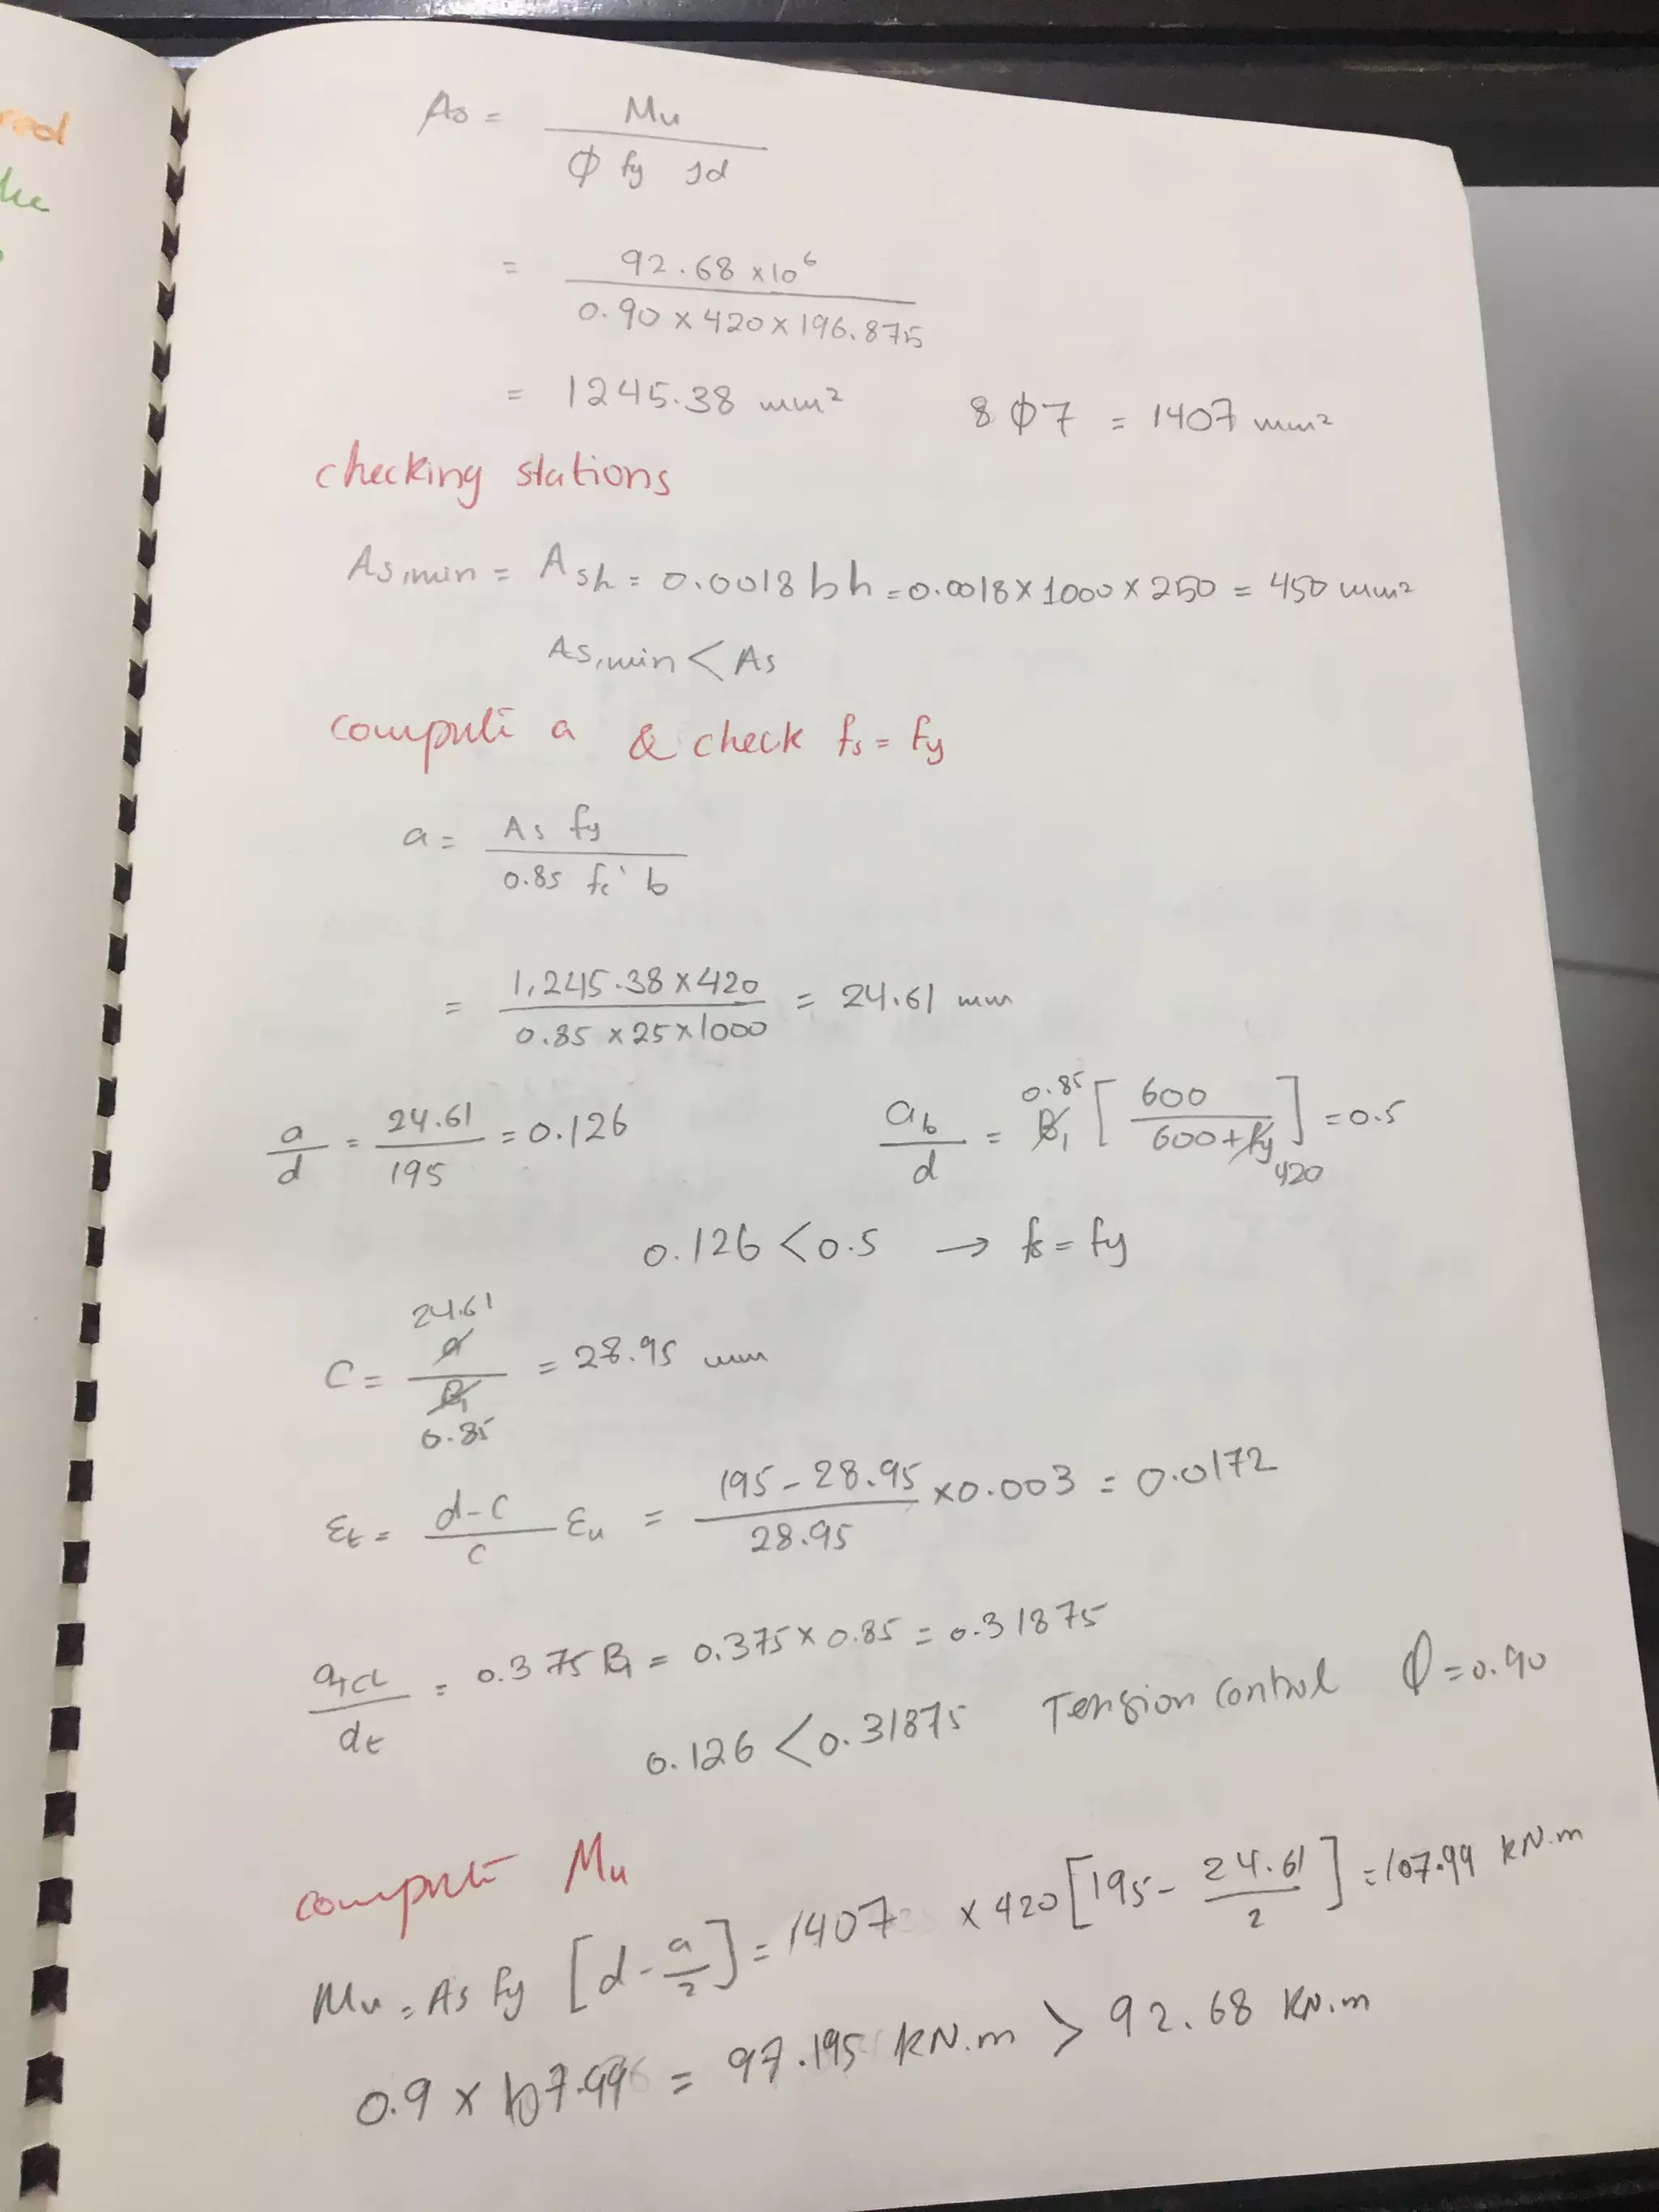 red
the
As = Mu / ϕ fy Jd
= 92.68 x10⁶ / 0.90 x 420 x 196.875
= 1245.38 mm² 8 ϕ 7 = 1407 mm²
checking stations
As,min = Ash = 0.0018 b h = 0.0018 x 1000 x 250 = 450 mm²
As,min < As
compute a & check fs = fy
a = As fy / 0.85 fc' b
= 1,245.38 x 420 / 0.85 x 25 x 1000 = 24.61 mm
a/d = 24.61/195 = 0.126 ab/d = 0.85 β1 [600 / 600 + fy 420] = 0.5
0.126 < 0.5 → fs = fy
24.61
C = a / β1 = 28.95 mm
0.85
εt = d-c / c εu = 195 - 28.95 / 28.95 x 0.003 = 0.0172
atcl / dt = 0.375 β1 = 0.375 x 0.85 = 0.31875
0.126 < 0.31875 Tension control ϕ = 0.90
compute Mu
Mu = As fy [d - a/2] = 1407 x 420 [195 - 24.61/2] = 107.99 kN.m
0.9 x 107.99 = 97.195 kN.m > 92.68 kN.m